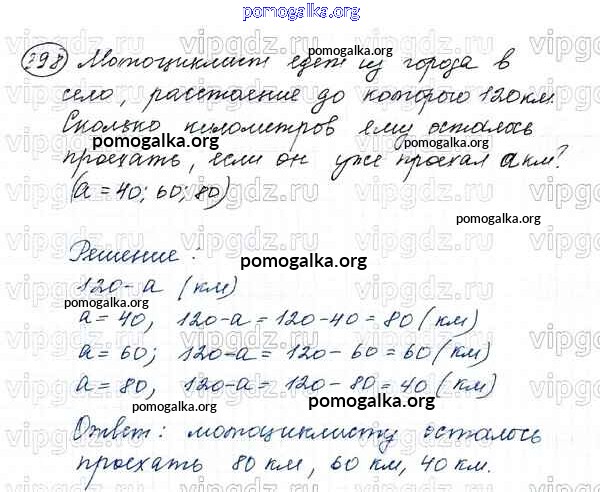 pomogalka.org
298 Мотоциклист едет из города в
село, расстояние до которого 120 км.
Сколько километров ему осталось
проехать, если он уже проехал a км?
(a = 40; 60; 80)
Решение:
120-a (км)
a = 40, 120-a = 120-40 = 80 (км)
a = 60; 120-a = 120-60 = 60 (км)
a = 80, 120-a = 120-80 = 40 (км)
Ответ: мотоциклисту осталось
проехать 80 км, 60 км, 40 км.
pomogalka.org
pomogalka.org
pomogalka.org
pomogalka.org
pomogalka.org
pomogalka.org
pomogalka.org
pomogalka.org
vipgdz.ru